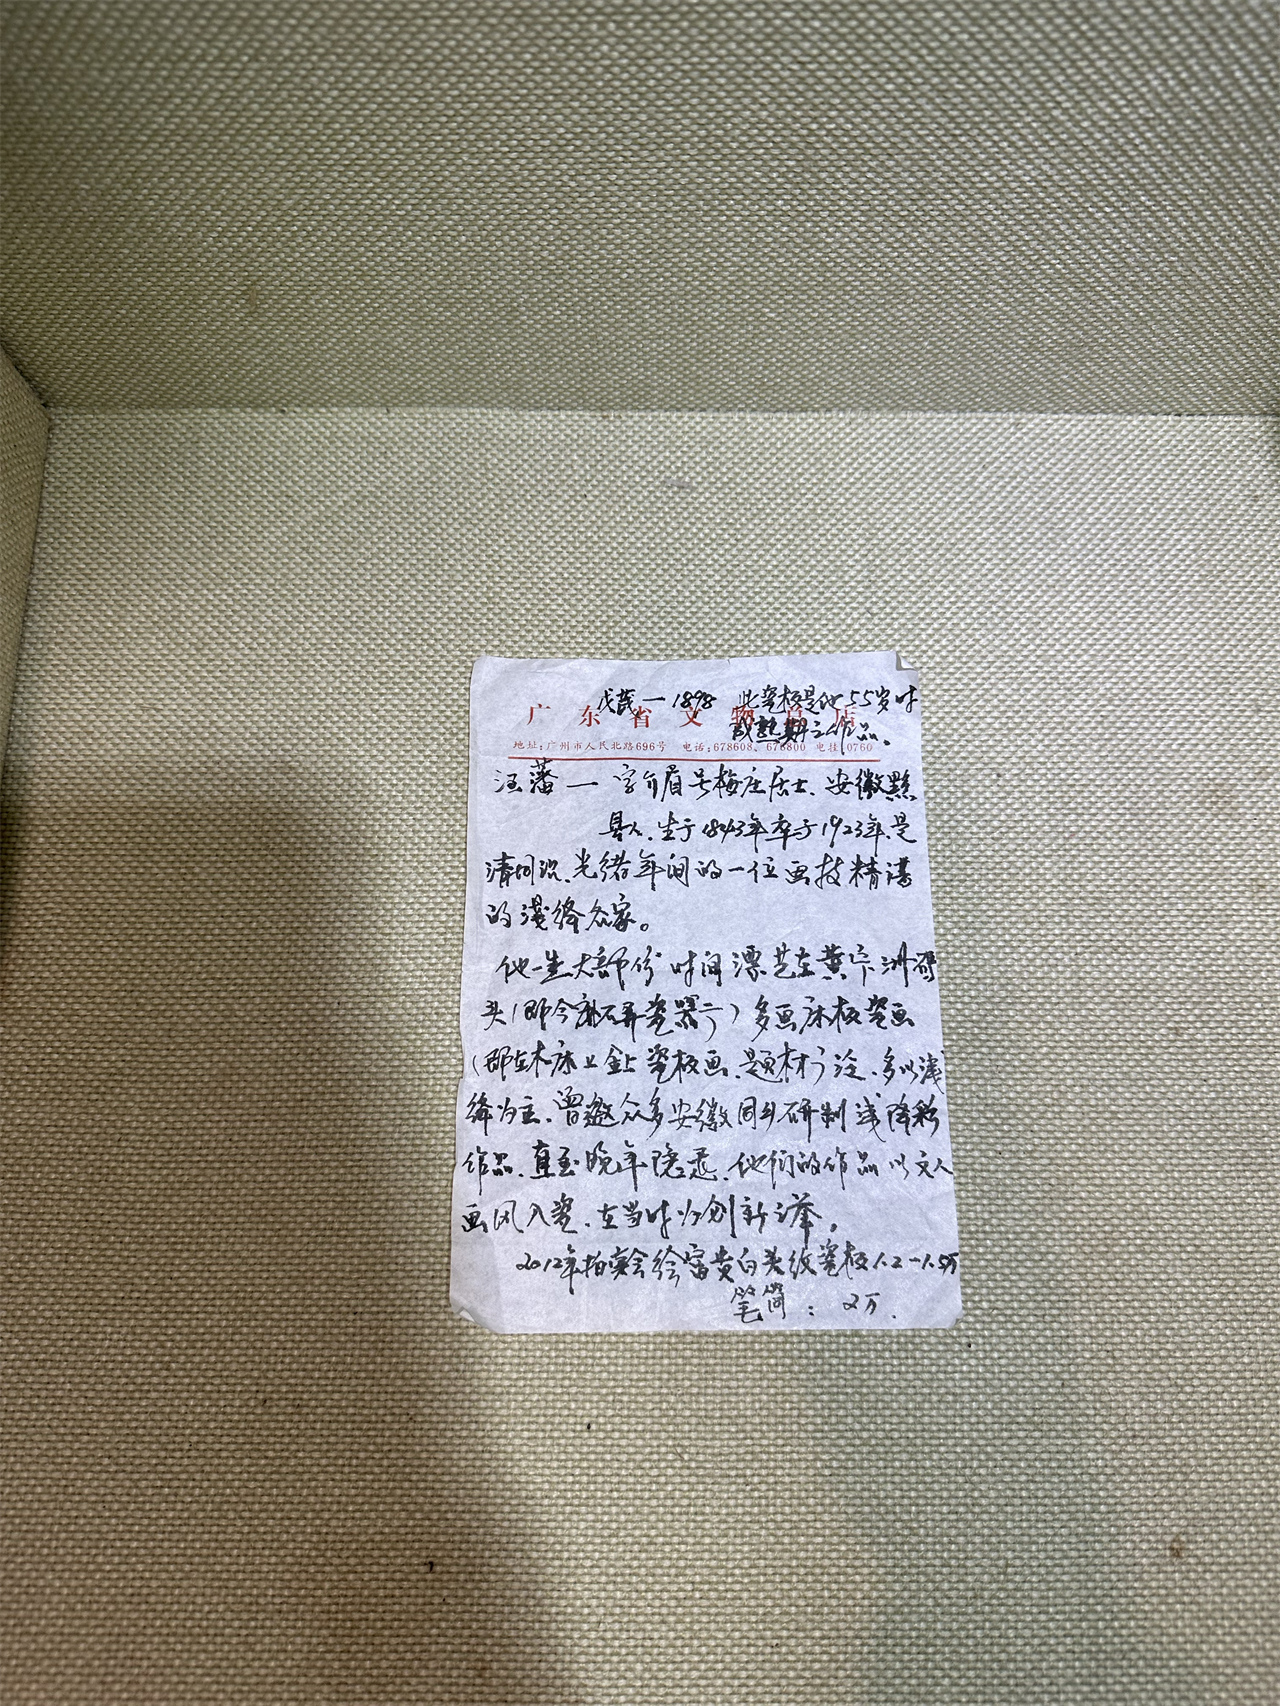 戊戌一1898 此瓷板是他55岁时
成熟期之作品。
广东省文物总店
地址:广州市人民北路696号 电话:678608、676800 电挂0760
汪藩一字介眉号梅庄居士、安徽黟
县人、生于1843年卒于1923年、是
清同治、光绪年间的一位画技精湛
的浅绛名家。
他一生大部份时间漂泊在黄家洲码
头(即今 瓷器厂)多画床板瓷画
(即在木床上 瓷板画、题材广泛、多以浅
绛为主、曾邀众多安徽同乡研制浅降彩
作品、直至晚年隐退、他们的作品以文人
画风入瓷、在当时为创新之举。
2012年拍卖会绘富贵白头纹瓷板1.2一1.5万
笔筒:2万.